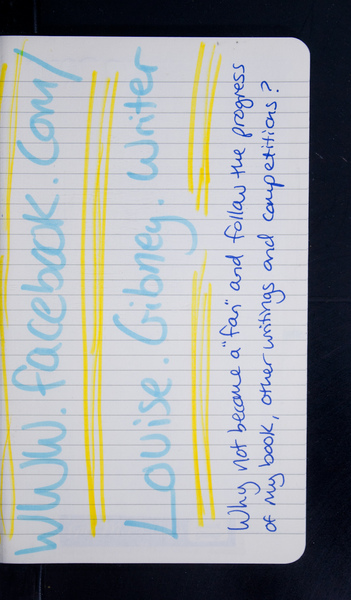 www.facebook.com/
Louise.Gibney.Writer
Why not become a "fan" and follow the progress
of my book, other writings and competitions?